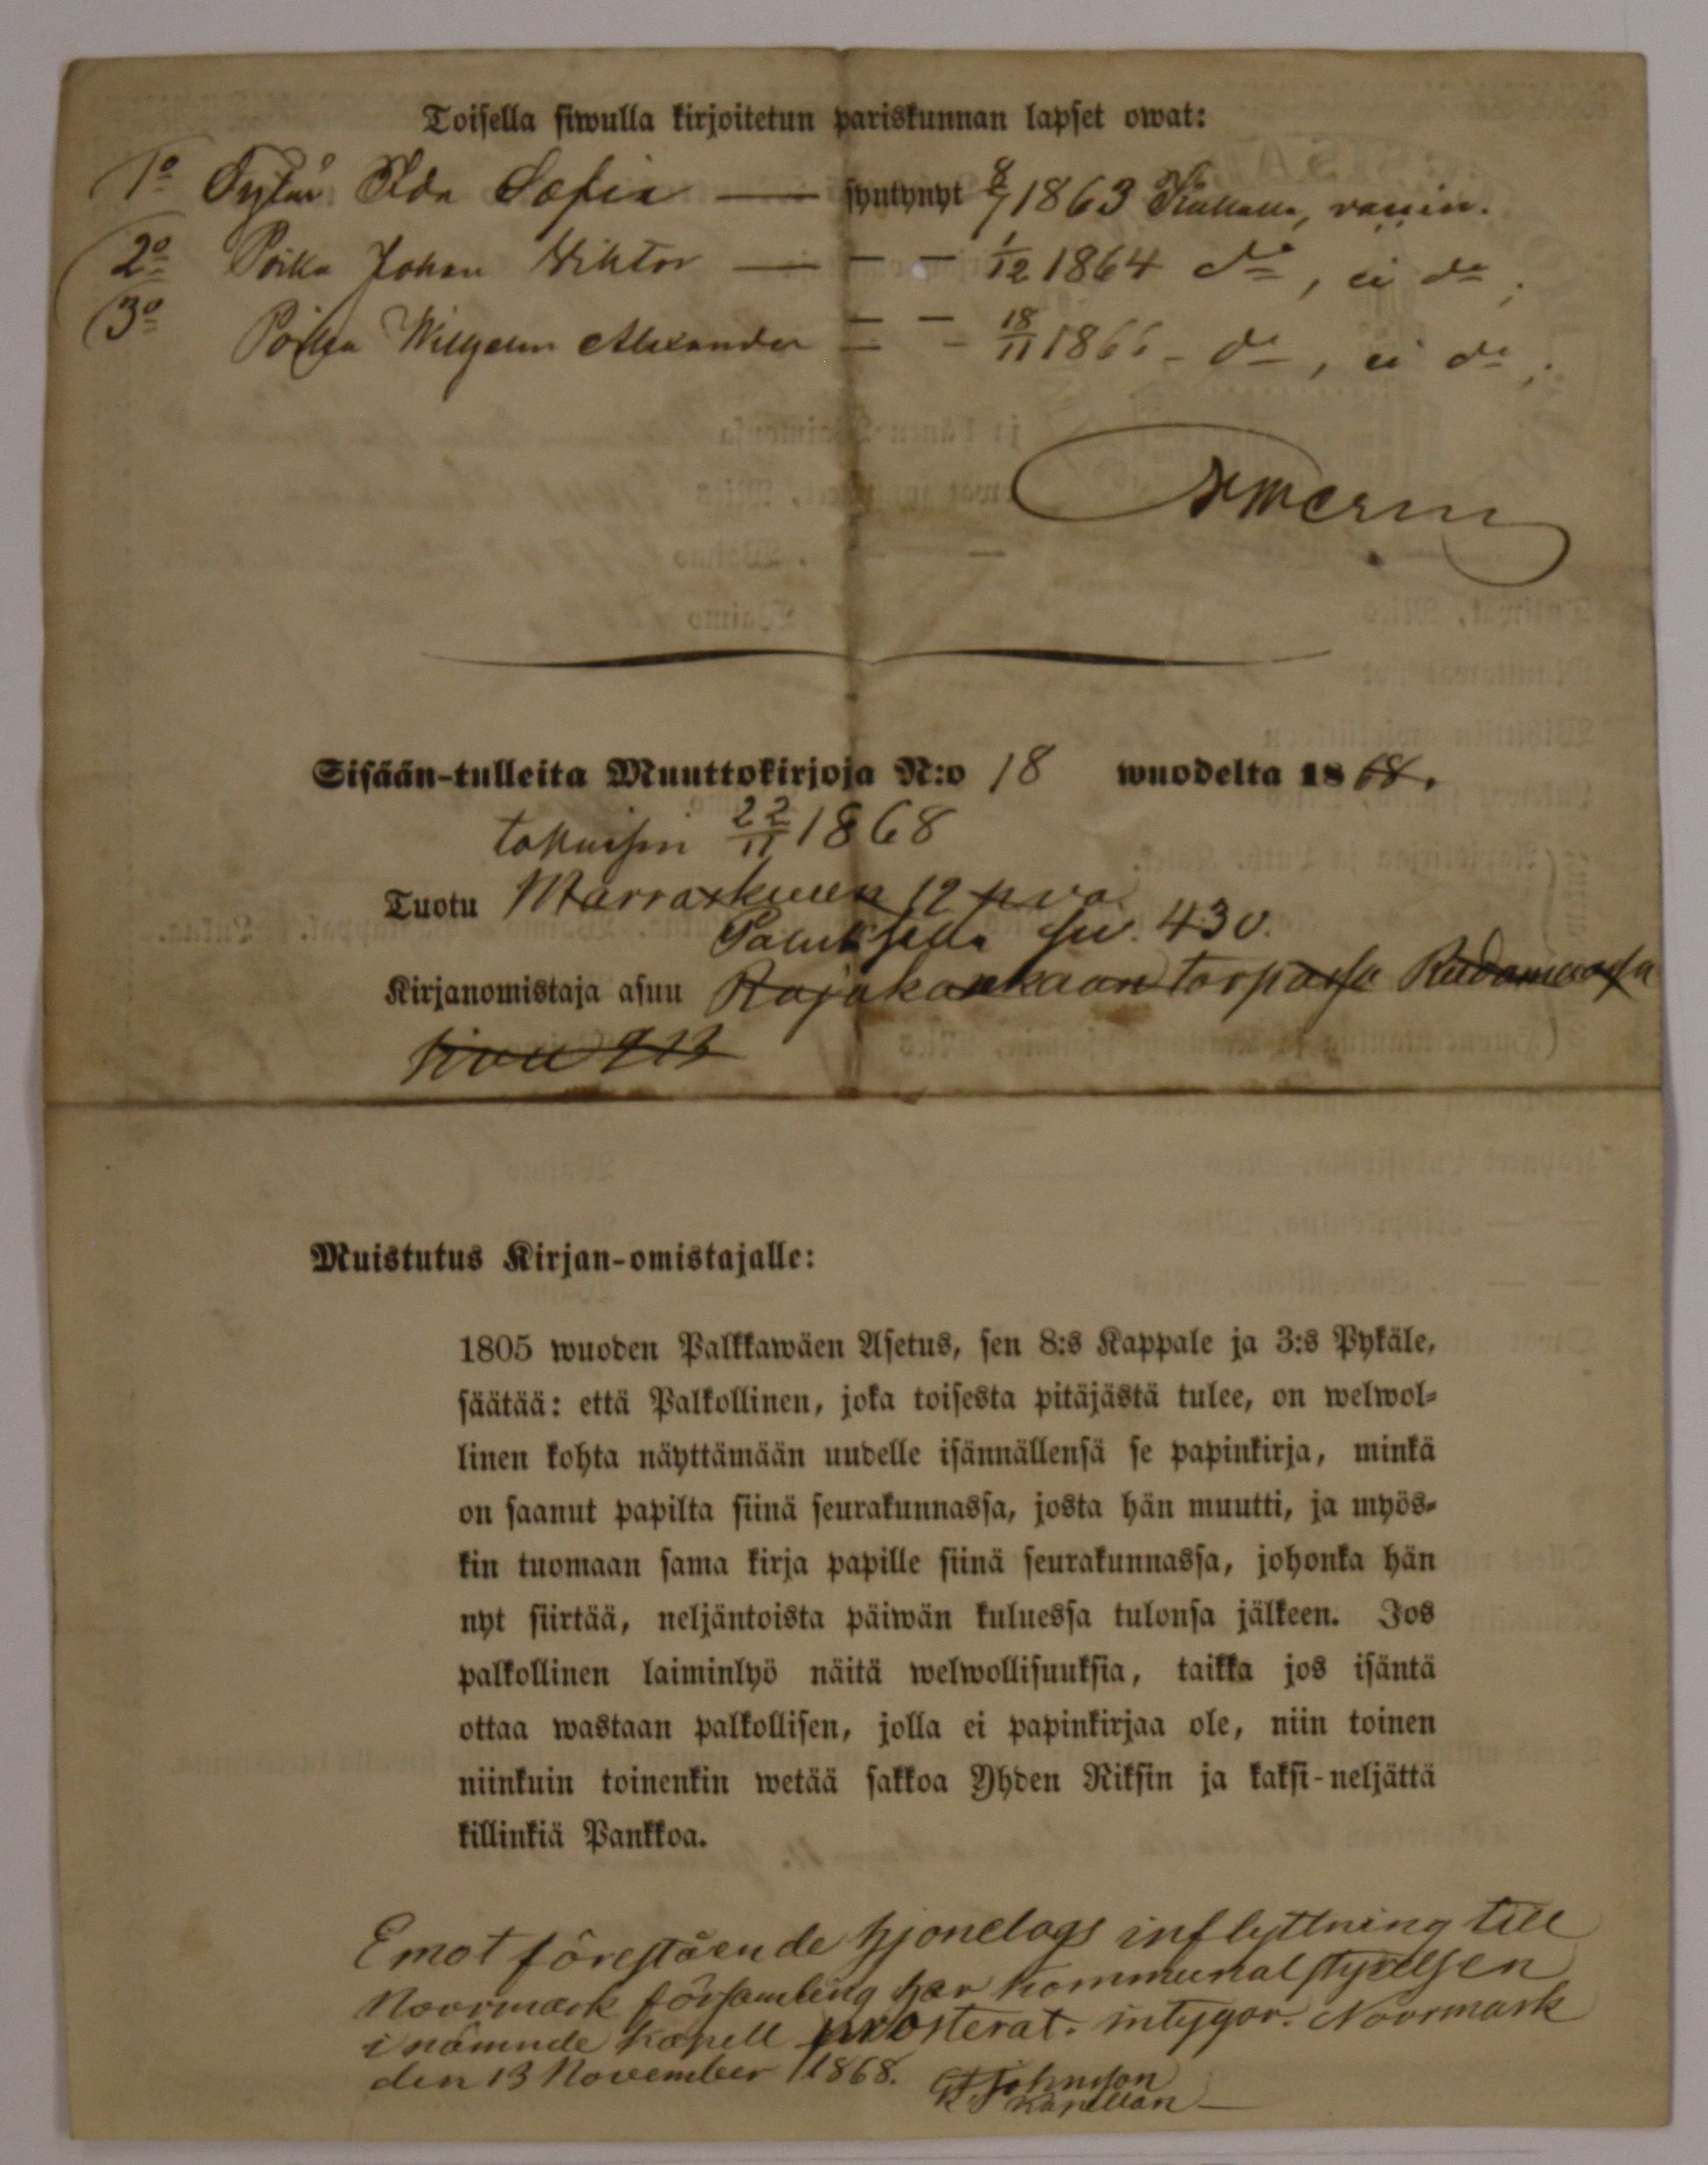 Toisella siwulla kirjoitetun pariskunnan lapset owat:
1o Tytär Ida Sofia — syntynyt 8/7 1863
2o Poika Johan Viktor — — — 1/12 1864 do, ei do,
3o Poika Wilhelm Alexander — — 18/11 1866 - do, ei do,
Sisään-tulleita Muuttokirjoja N:o 18 wuodelta 1868.
takaisin 22/11 1868
Tuotu Marraskuun 12 p:va
sw. 430.
Kirjanomistaja asuu Rajakankaan torpassa Rudamaassa
sivu 913
Muistutus Kirjan-omistajalle:
1805 wuoden Palkkawäen Asetus, sen 8:s Kappale ja 3:s Pykäle,
säätää: että Palkollinen, joka toisesta pitäjästä tulee, on welwol-
linen kohta näyttämään uudelle isännällensä se papinkirja, minkä
on saanut papilta siinä seurakunnassa, josta hän muutti, ja myös-
kin tuomaan sama kirja papille siinä seurakunnassa, johonka hän
nyt siirtää, neljäntoista päiwän kuluessa tulonsa jälkeen. Jos
palkollinen laiminlyö näitä welwollisuuksia, taikka jos isäntä
ottaa wastaan palkollisen, jolla ei papinkirjaa ole, niin toinen
niinkuin toinenkin wetää sakkoa Yhden Riksin ja kaksi-neljättä
killinkiä Pankkoa.
Emot förestående hjonelags inflyttning till
Noormark församling har kommunalstyrelsen
i nämnde kapell protsterat. intygar. Noormark
den 13 November 1868. Johnsson
Kapellan